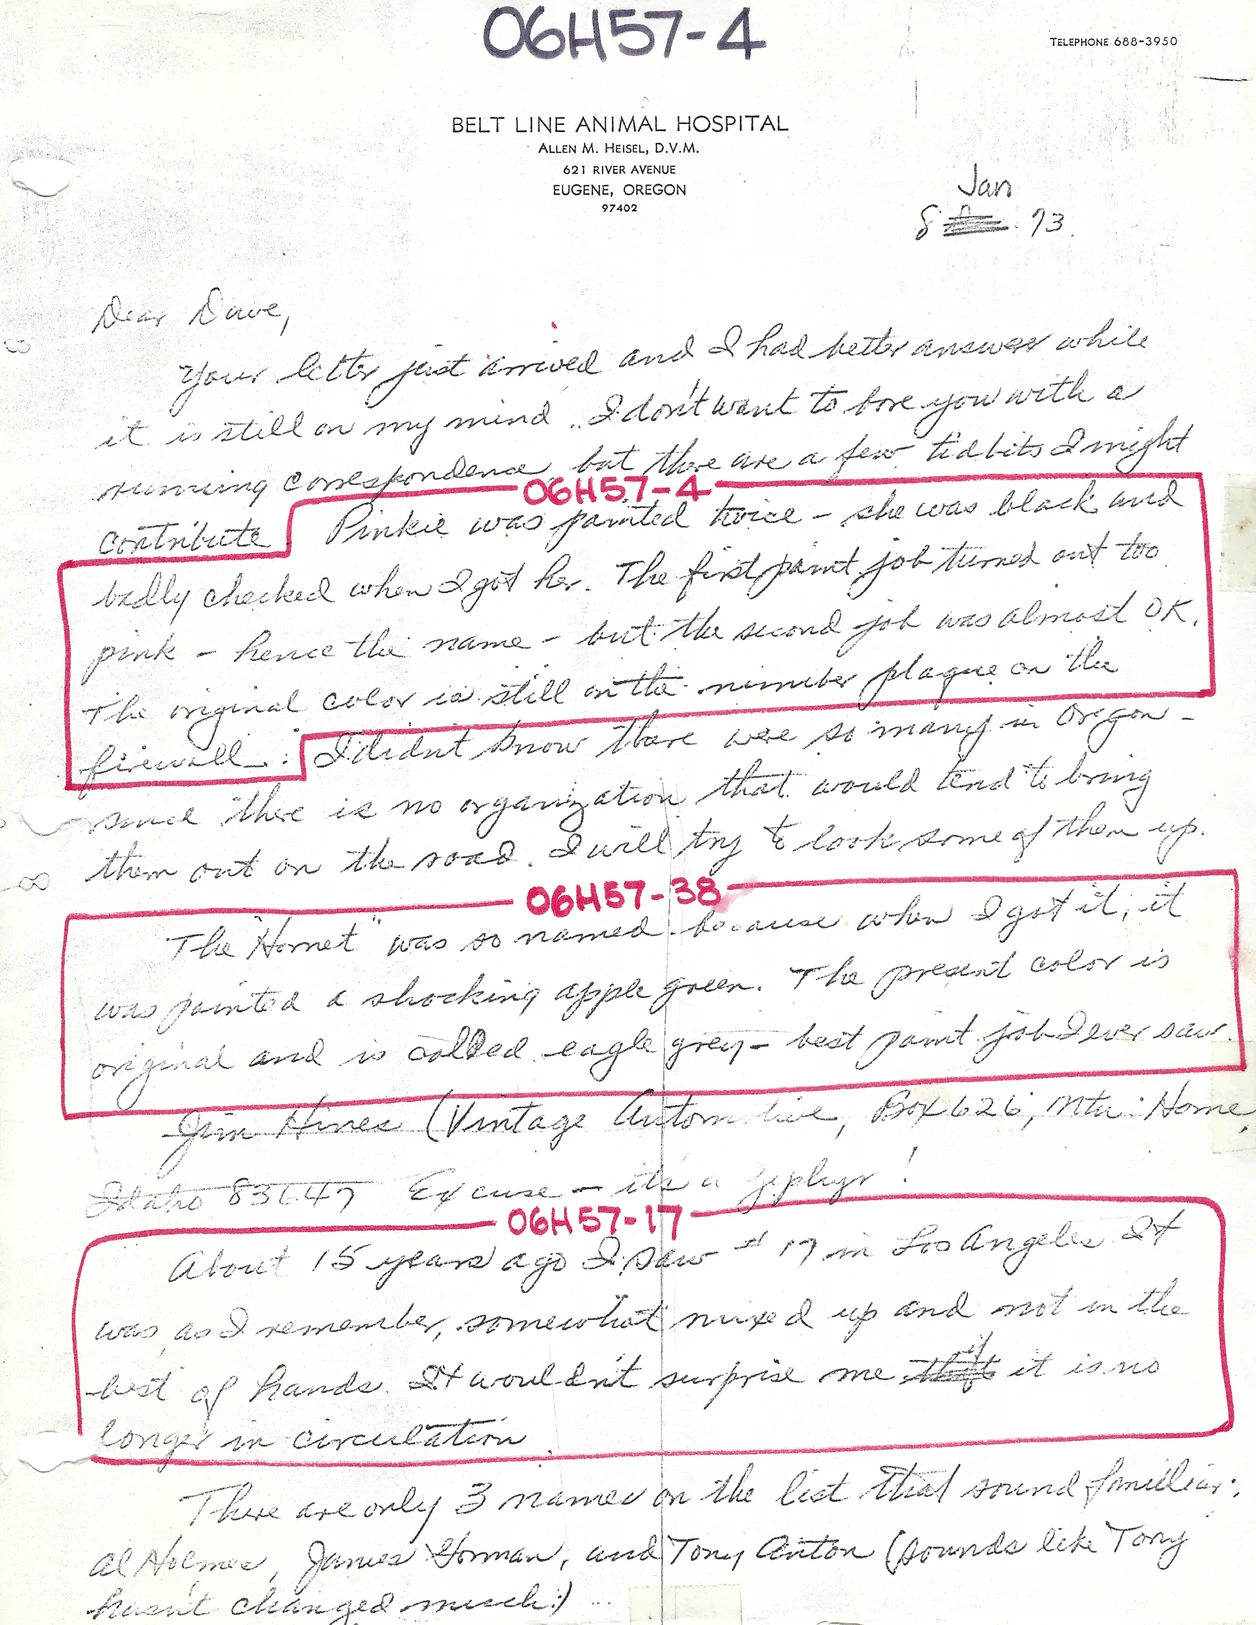 06H57-4
TELEPHONE 688-3950
BELT LINE ANIMAL HOSPITAL
ALLEN M. HEISEL, D.V.M.
621 RIVER AVENUE
EUGENE, OREGON
97402
Jan
8 73.
Dear Dave,
Your letter just arrived and I had better answer while
it is still on my mind. I don't want to bore you with a
running correspondence but there are a few tidbits I might
06H57-4
contribute Pinkie was painted twice - she was black and
badly checked when I got her. The first paint job turned out too
pink - hence the name - but the second job was almost OK.
The original color is still on the number plaque on the
firewall. I didn't know there were so many in Oregon -
since there is no organization that would tend to bring
them out on the road. I will try to look some of them up.
06H57-38
The "Hornet" was so named because when I got it, it
was painted a shocking apple green. The present color is
original and is called eagle grey - best paint job I ever saw.
Jim Hines (Vintage Automotive, Box 626, Mtn. Home,
Idaho 83647 Excuse - it's a Zephyr!
06H57-17
About 15 years ago I saw #17 in Los Angeles It
was, as I remember, somewhat mixed up and not in the
best of hands. It wouldn't surprise me if it is no
longer in circulation.
There are only 3 names on the list that sound familiar:
Al Holmes, James Gorman, and Tony Anton (sounds like Tony
hasn't changed much:)